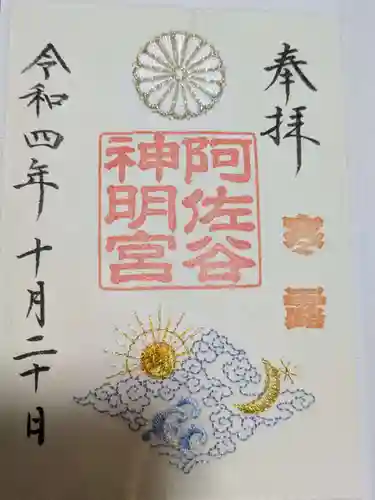 奉拝
寒露
阿佐谷
神明宮
令和四年十月二十日